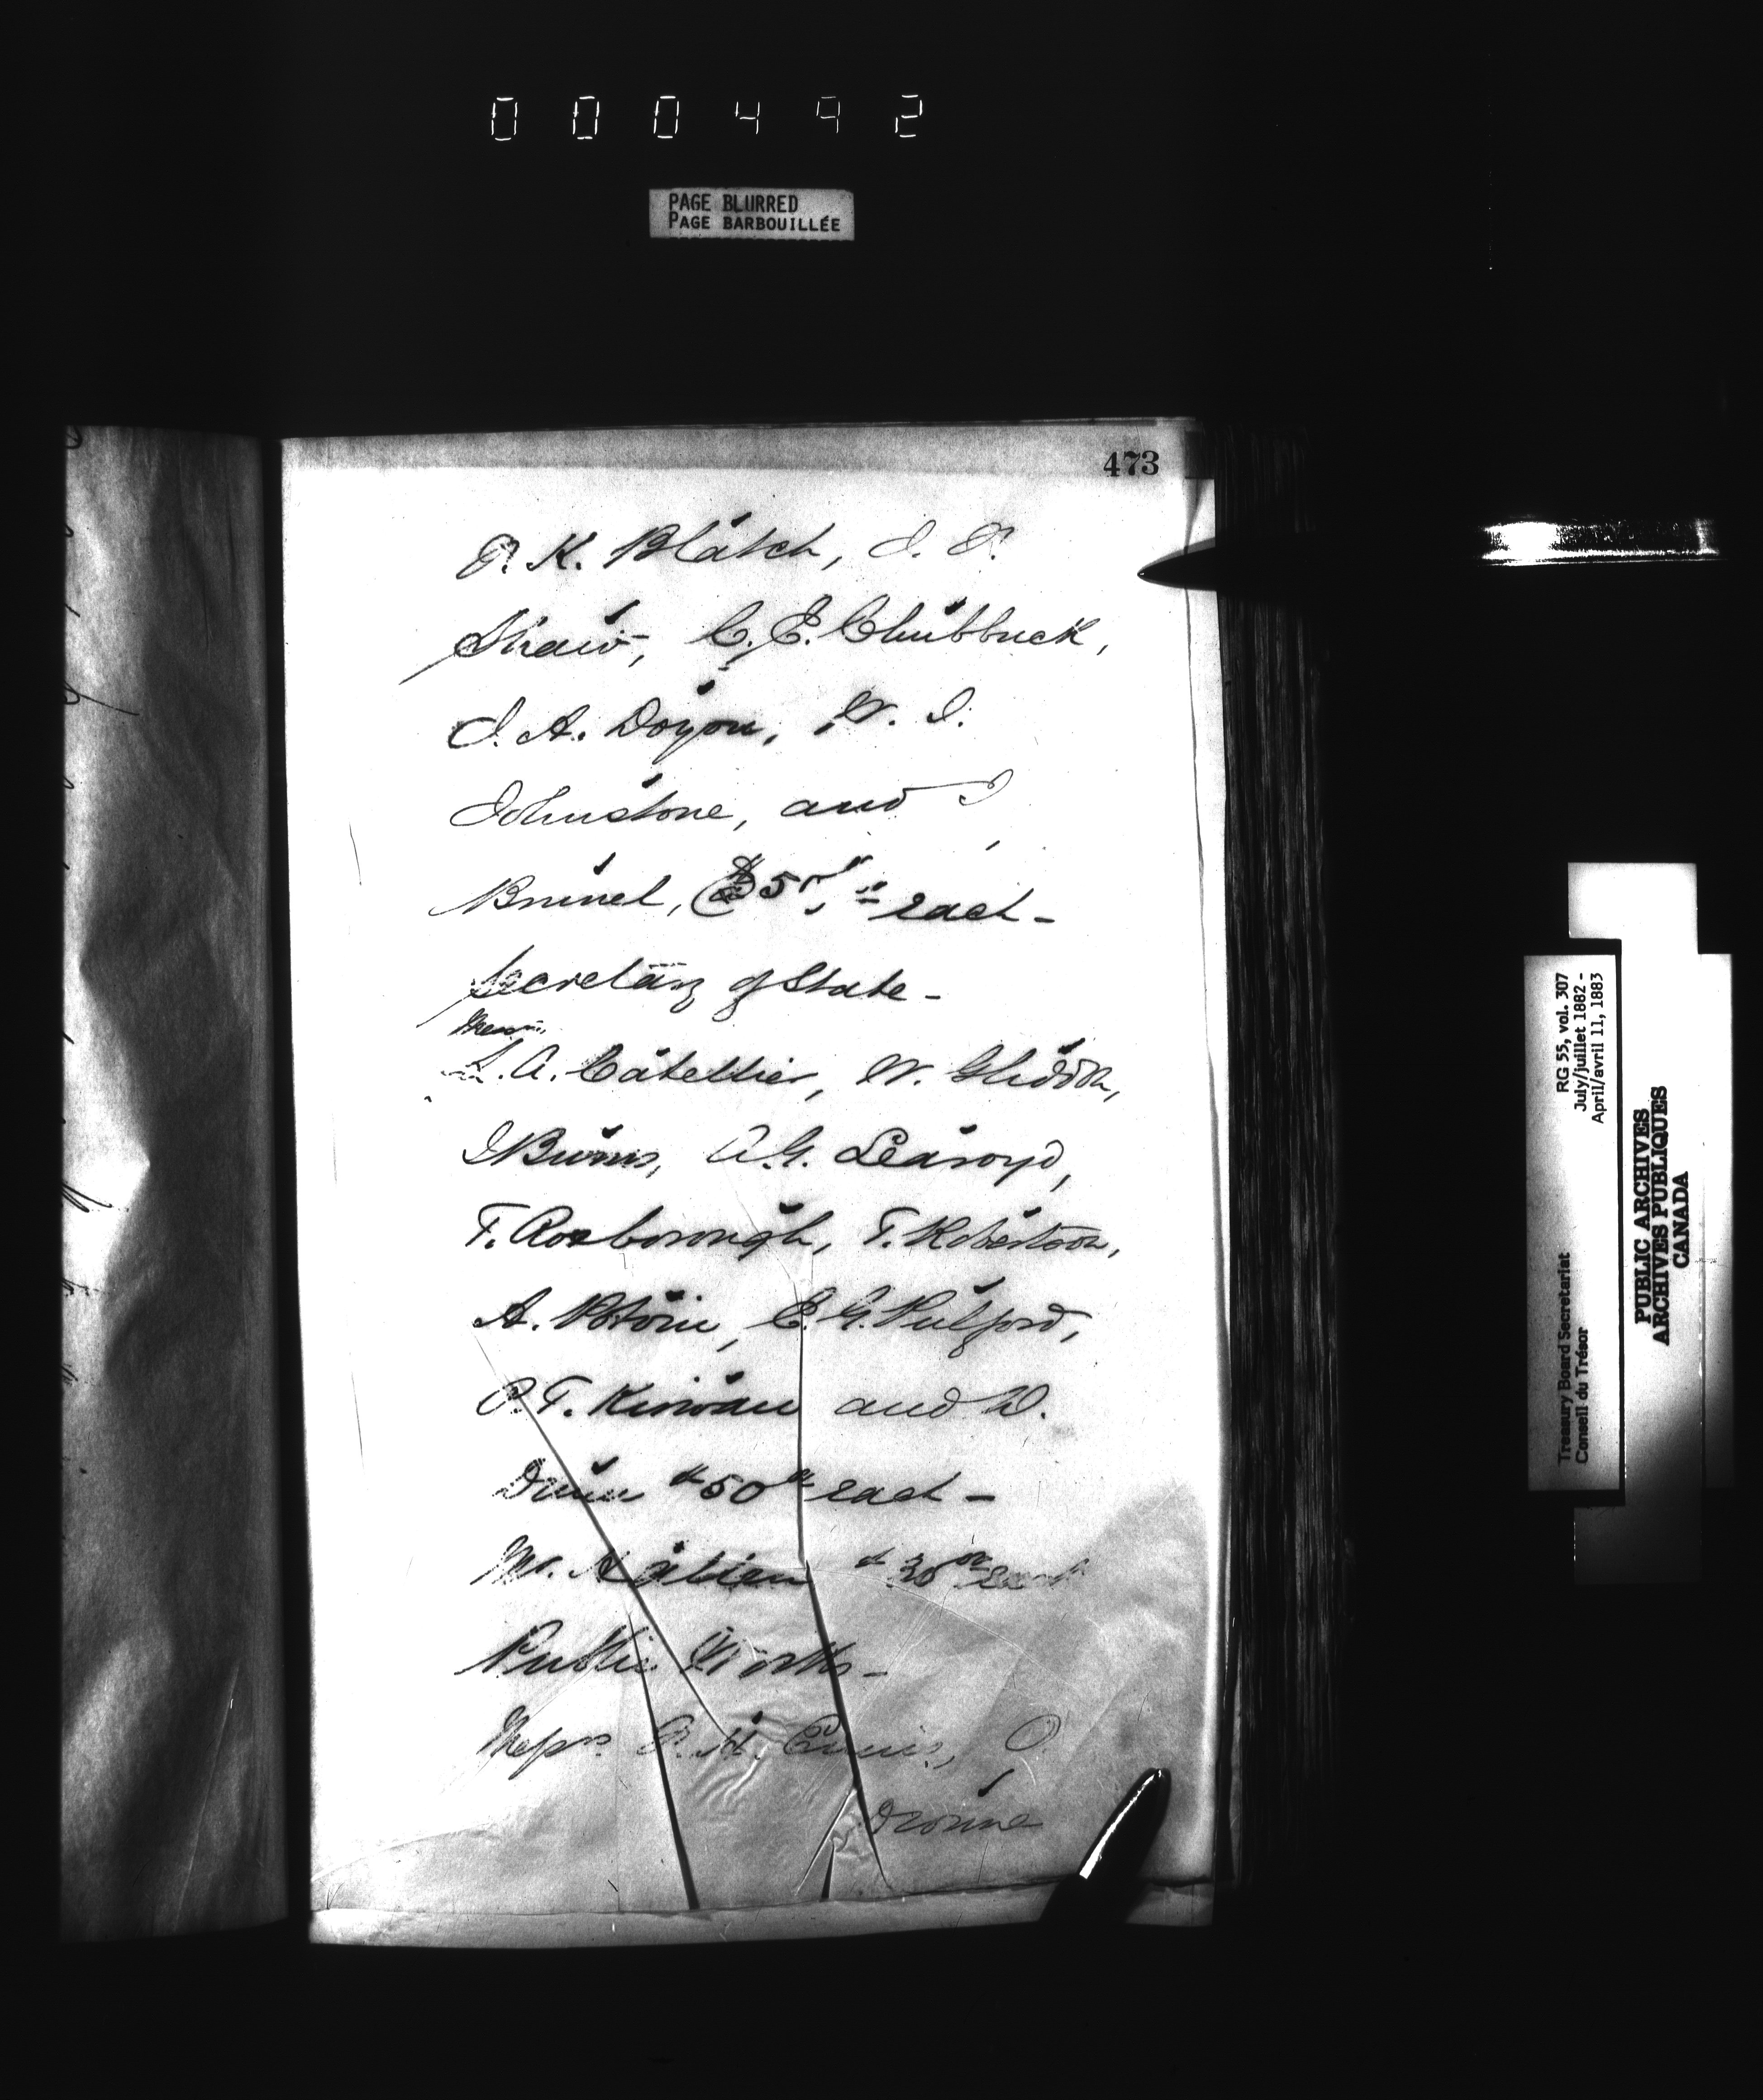 000492
PAGE BLURRED
PAGE BARBOUILLÉE
473
P. K. Blatch, J. P.
Shaw, C. E. Chubbuck,
J. A. Doyon, W. J.
Johnstone, and J
Brunel, @ $50 each -
Secretary of State -
Messrs
L. A. Catellier, W. Gliddon,
J Burns, A. G. Learoyd,
F. Roxborough, T. Robertson,
A. Potvin, E. G. Pulford,
P. T. Kirwan and W.
Dunn $50 each -
Mr. $30
Public Works -
Messrs P. H.
RG 55, vol. 307
July/juillet 1882 -
April/avril 11, 1883
Treasury Board Secretariat
Conseil du Trésor
PUBLIC ARCHIVES
ARCHIVES PUBLIQUES
CANADA